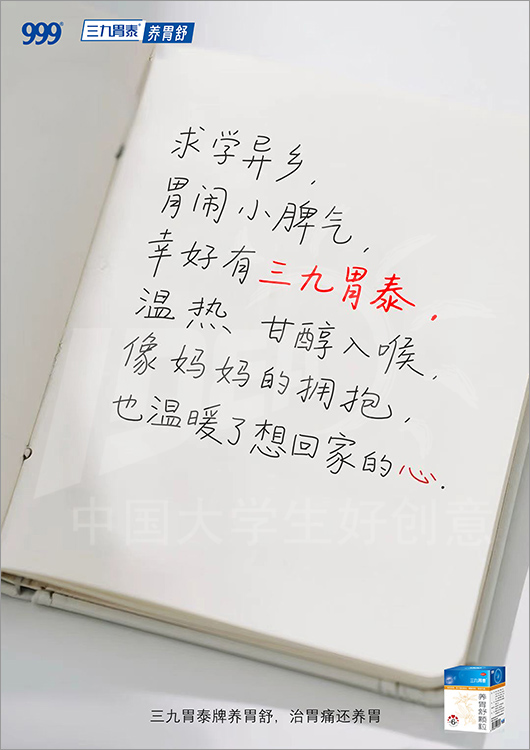 999 三九胃泰 养胃舒
求学异乡，
胃闹小脾气，
幸好有三九胃泰，
温热、甘醇入喉，
像妈妈的拥抱，
也温暖了想回家的心.
中国大学生好创意
三九胃泰
养胃舒颗粒
三九胃泰牌养胃舒，治胃痛还养胃